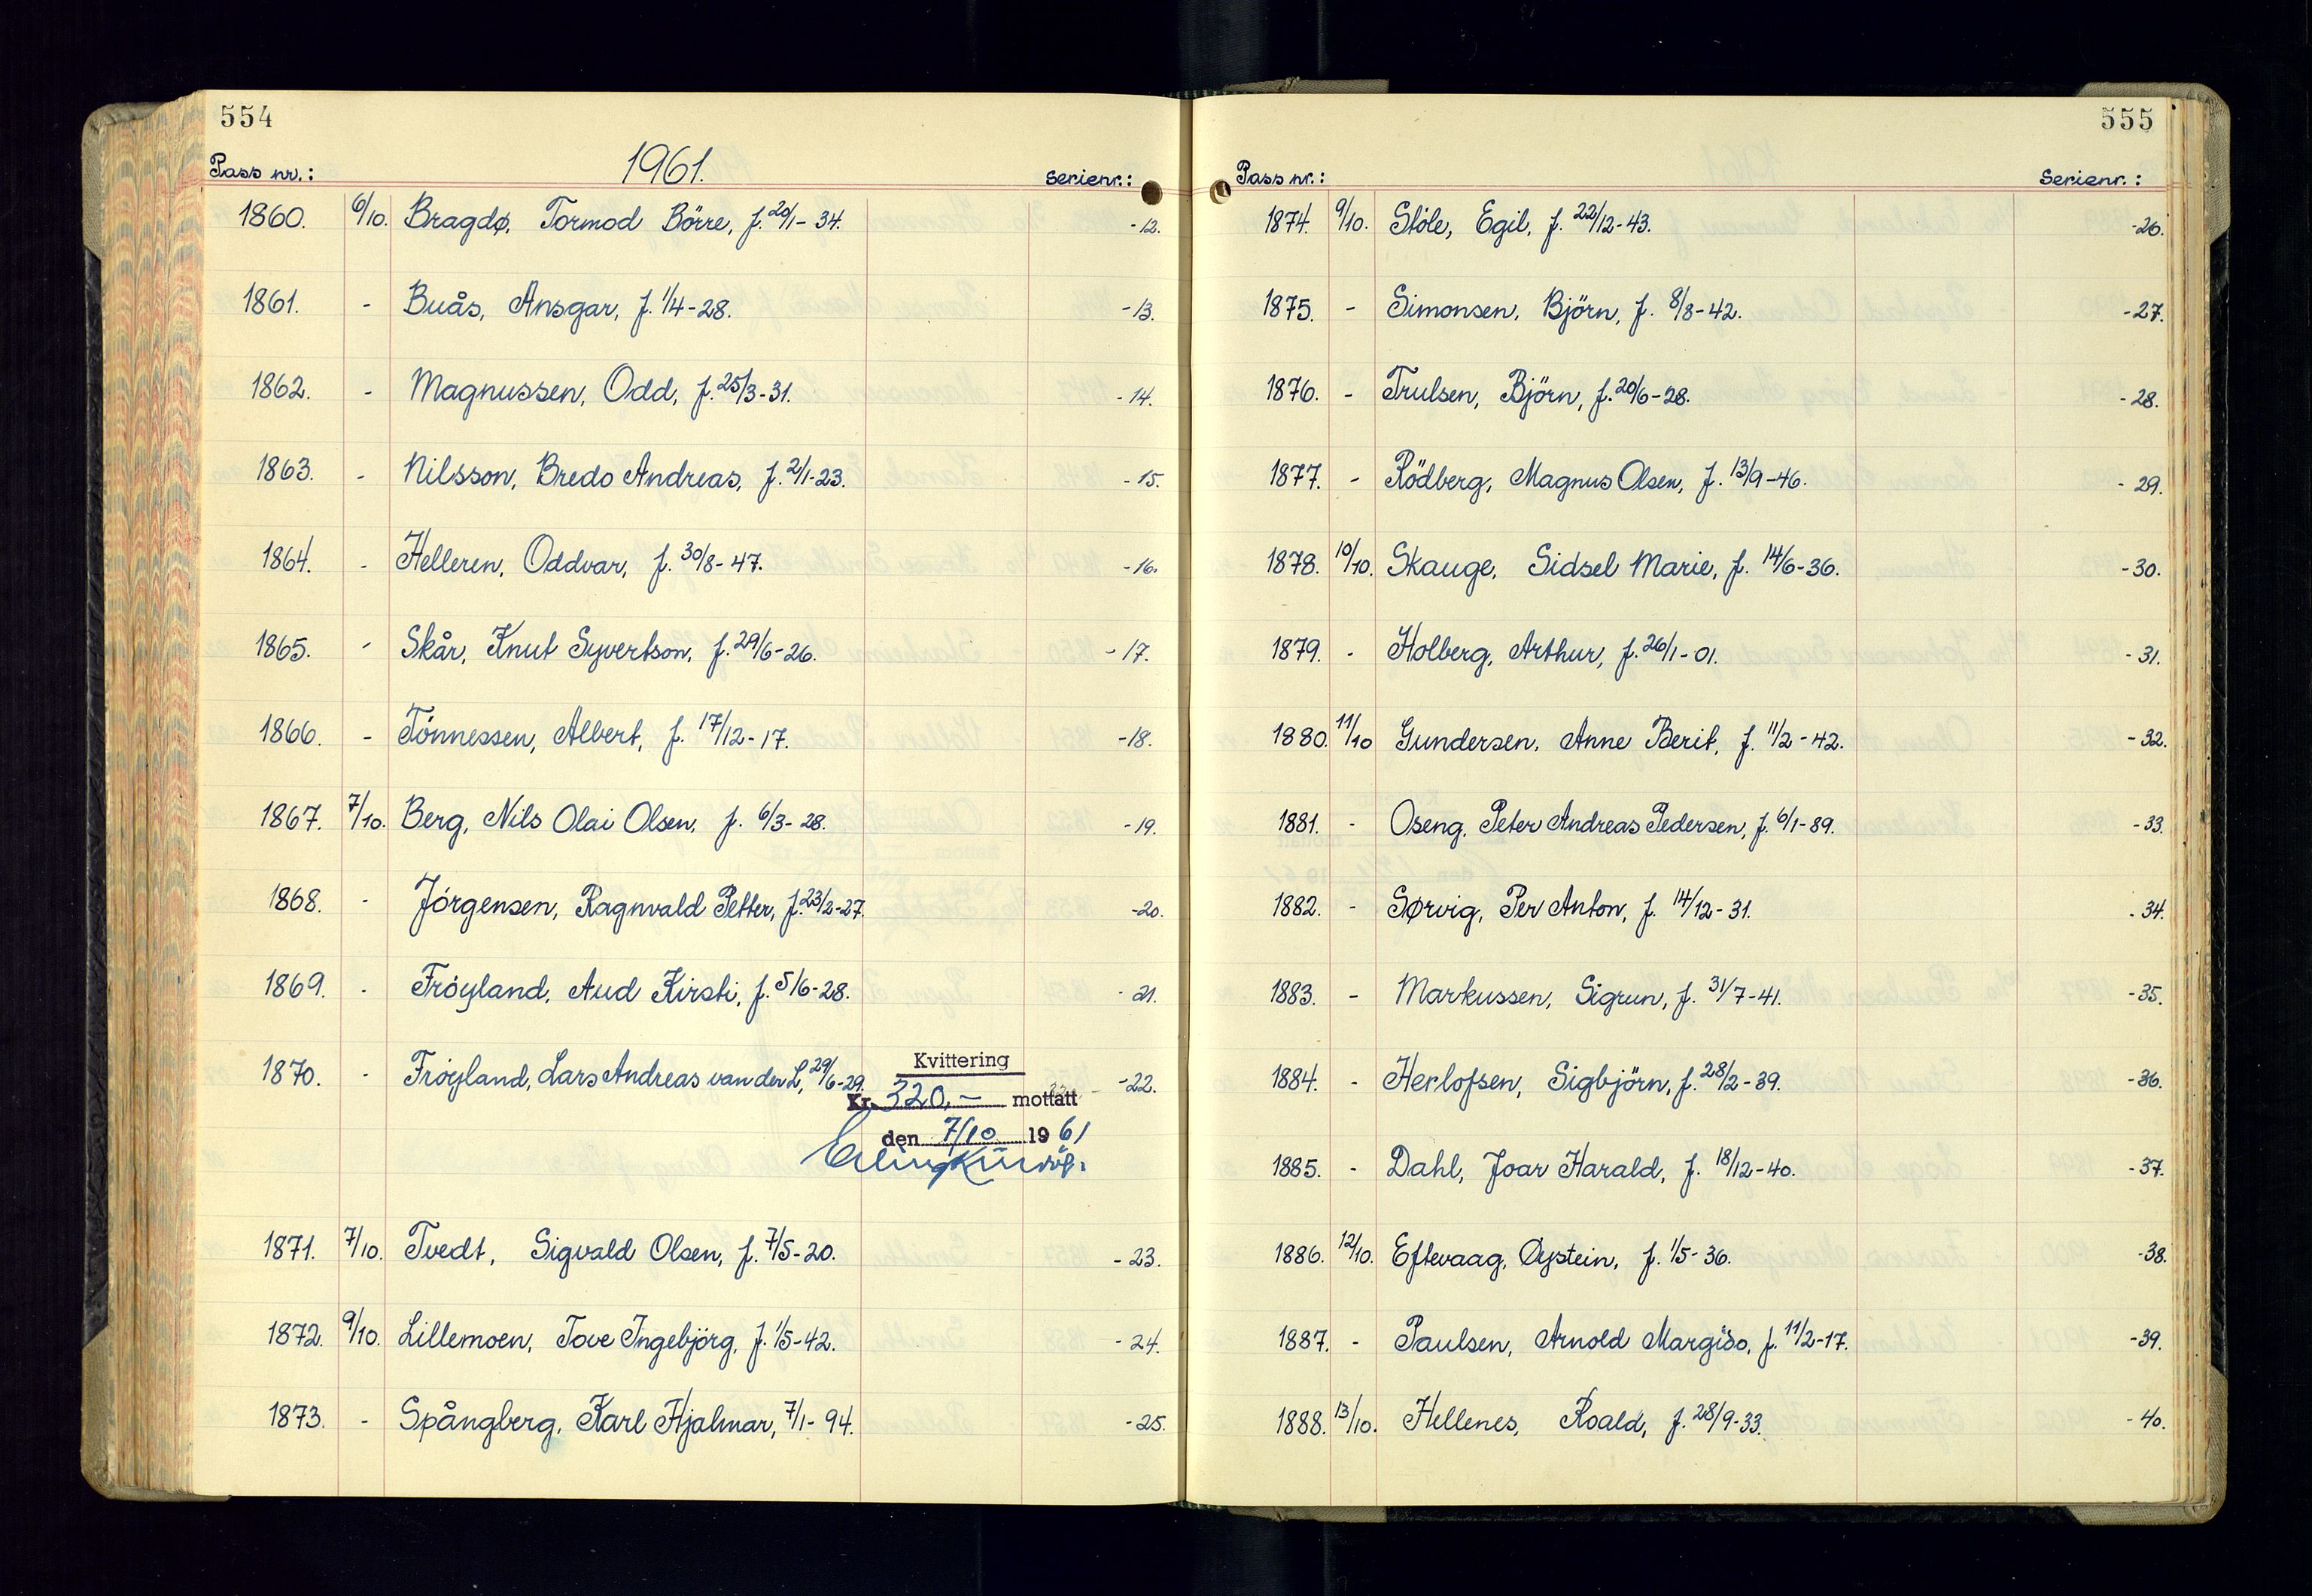 554
Pass nr.: 1961. Serienr.:
1860. 6/10. Bragdø, Tormod Börre, f. 20/1-34. -12.
1861. - Buås, Ansgar, f. 1/4-28. -13.
1862. - Magnussen, Odd, f. 25/3-31. -14.
1863. - Nilsson, Bredo Andreas, f. 2/1-23. -15.
1864. - Helleren, Oddvar, f. 30/8-47. -16.
1865. - Skår, Knut Syvertson, f. 29/6-26. -17.
1866. - Tönnessen, Albert, f. 17/12-17. -18.
1867. 7/10. Berg, Nils Olai Olsen, f. 6/3-28. -19.
1868. - Jörgensen, Ragnvald Petter, f. 23/2-27. -20.
1869. - Fröyland, Aud Kirsti, f. 5/6-28. -21.
1870. - Fröyland, Lars Andreas van der L, 29/6-29. -22.
Kvittering
Kr. 320,- mottatt
den 7/10 1961
1871. 7/10. Tvedt, Sigvald Olsen, f. 7/5-20. -23.
1872. 9/10. Lillemoen, Tove Ingebjörg, f. 1/5-42. -24.
1873. - Spångberg, Karl Hjalmar, 7/1-94. -25.
555
Pass nr.: Serienr.:
1874. 9/10. Stöle, Egil, f. 22/12-43. -26.
1875. - Simonsen, Björn, f. 8/8-42. -27.
1876. - Trulsen, Björn, f. 20/6-28. -28.
1877. - Rödberg, Magnus Olsen, f. 13/9-46. -29.
1878. 10/10. Skauge, Sidsel Marie, f. 14/6-36. -30.
1879. - Holberg, Arthur, f. 26/1-01. -31.
1880. 11/10 Gundersen, Anne Berit, f. 11/2-42. -32.
1881. - Oseng, Peter Andreas Pedersen, f. 6/1-89. -33.
1882. - Sørvig, Per Anton, f. 14/12-31. -34.
1883. - Markussen, Sigrun, f. 31/7-41. -35.
1884. - Herlofsen, Sigbjörn, f. 28/2-39. -36.
1885. - Dahl, Joar Harald, f. 18/12-40. -37.
1886. 12/10. Eftevaag, Øystein, f. 1/5-36. -38.
1887. - Paulsen, Arnold Margido, f. 11/2-17. -39.
1888. 13/10. Hellenes, Roald, f. 28/9-33. -40.